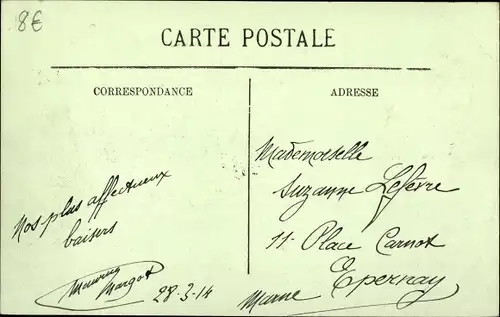 8€
CARTE POSTALE
CORRESPONDANCE
ADRESSE
Nos plus affectueux
baisers
Margot
28-3-14
Mademoiselle
Suzanne Lefèvre
11 - Place Carnot
Epernay
Marne